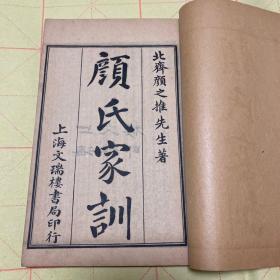 北齊顏之推先生著
顏氏家訓
上海文瑞樓書局印行